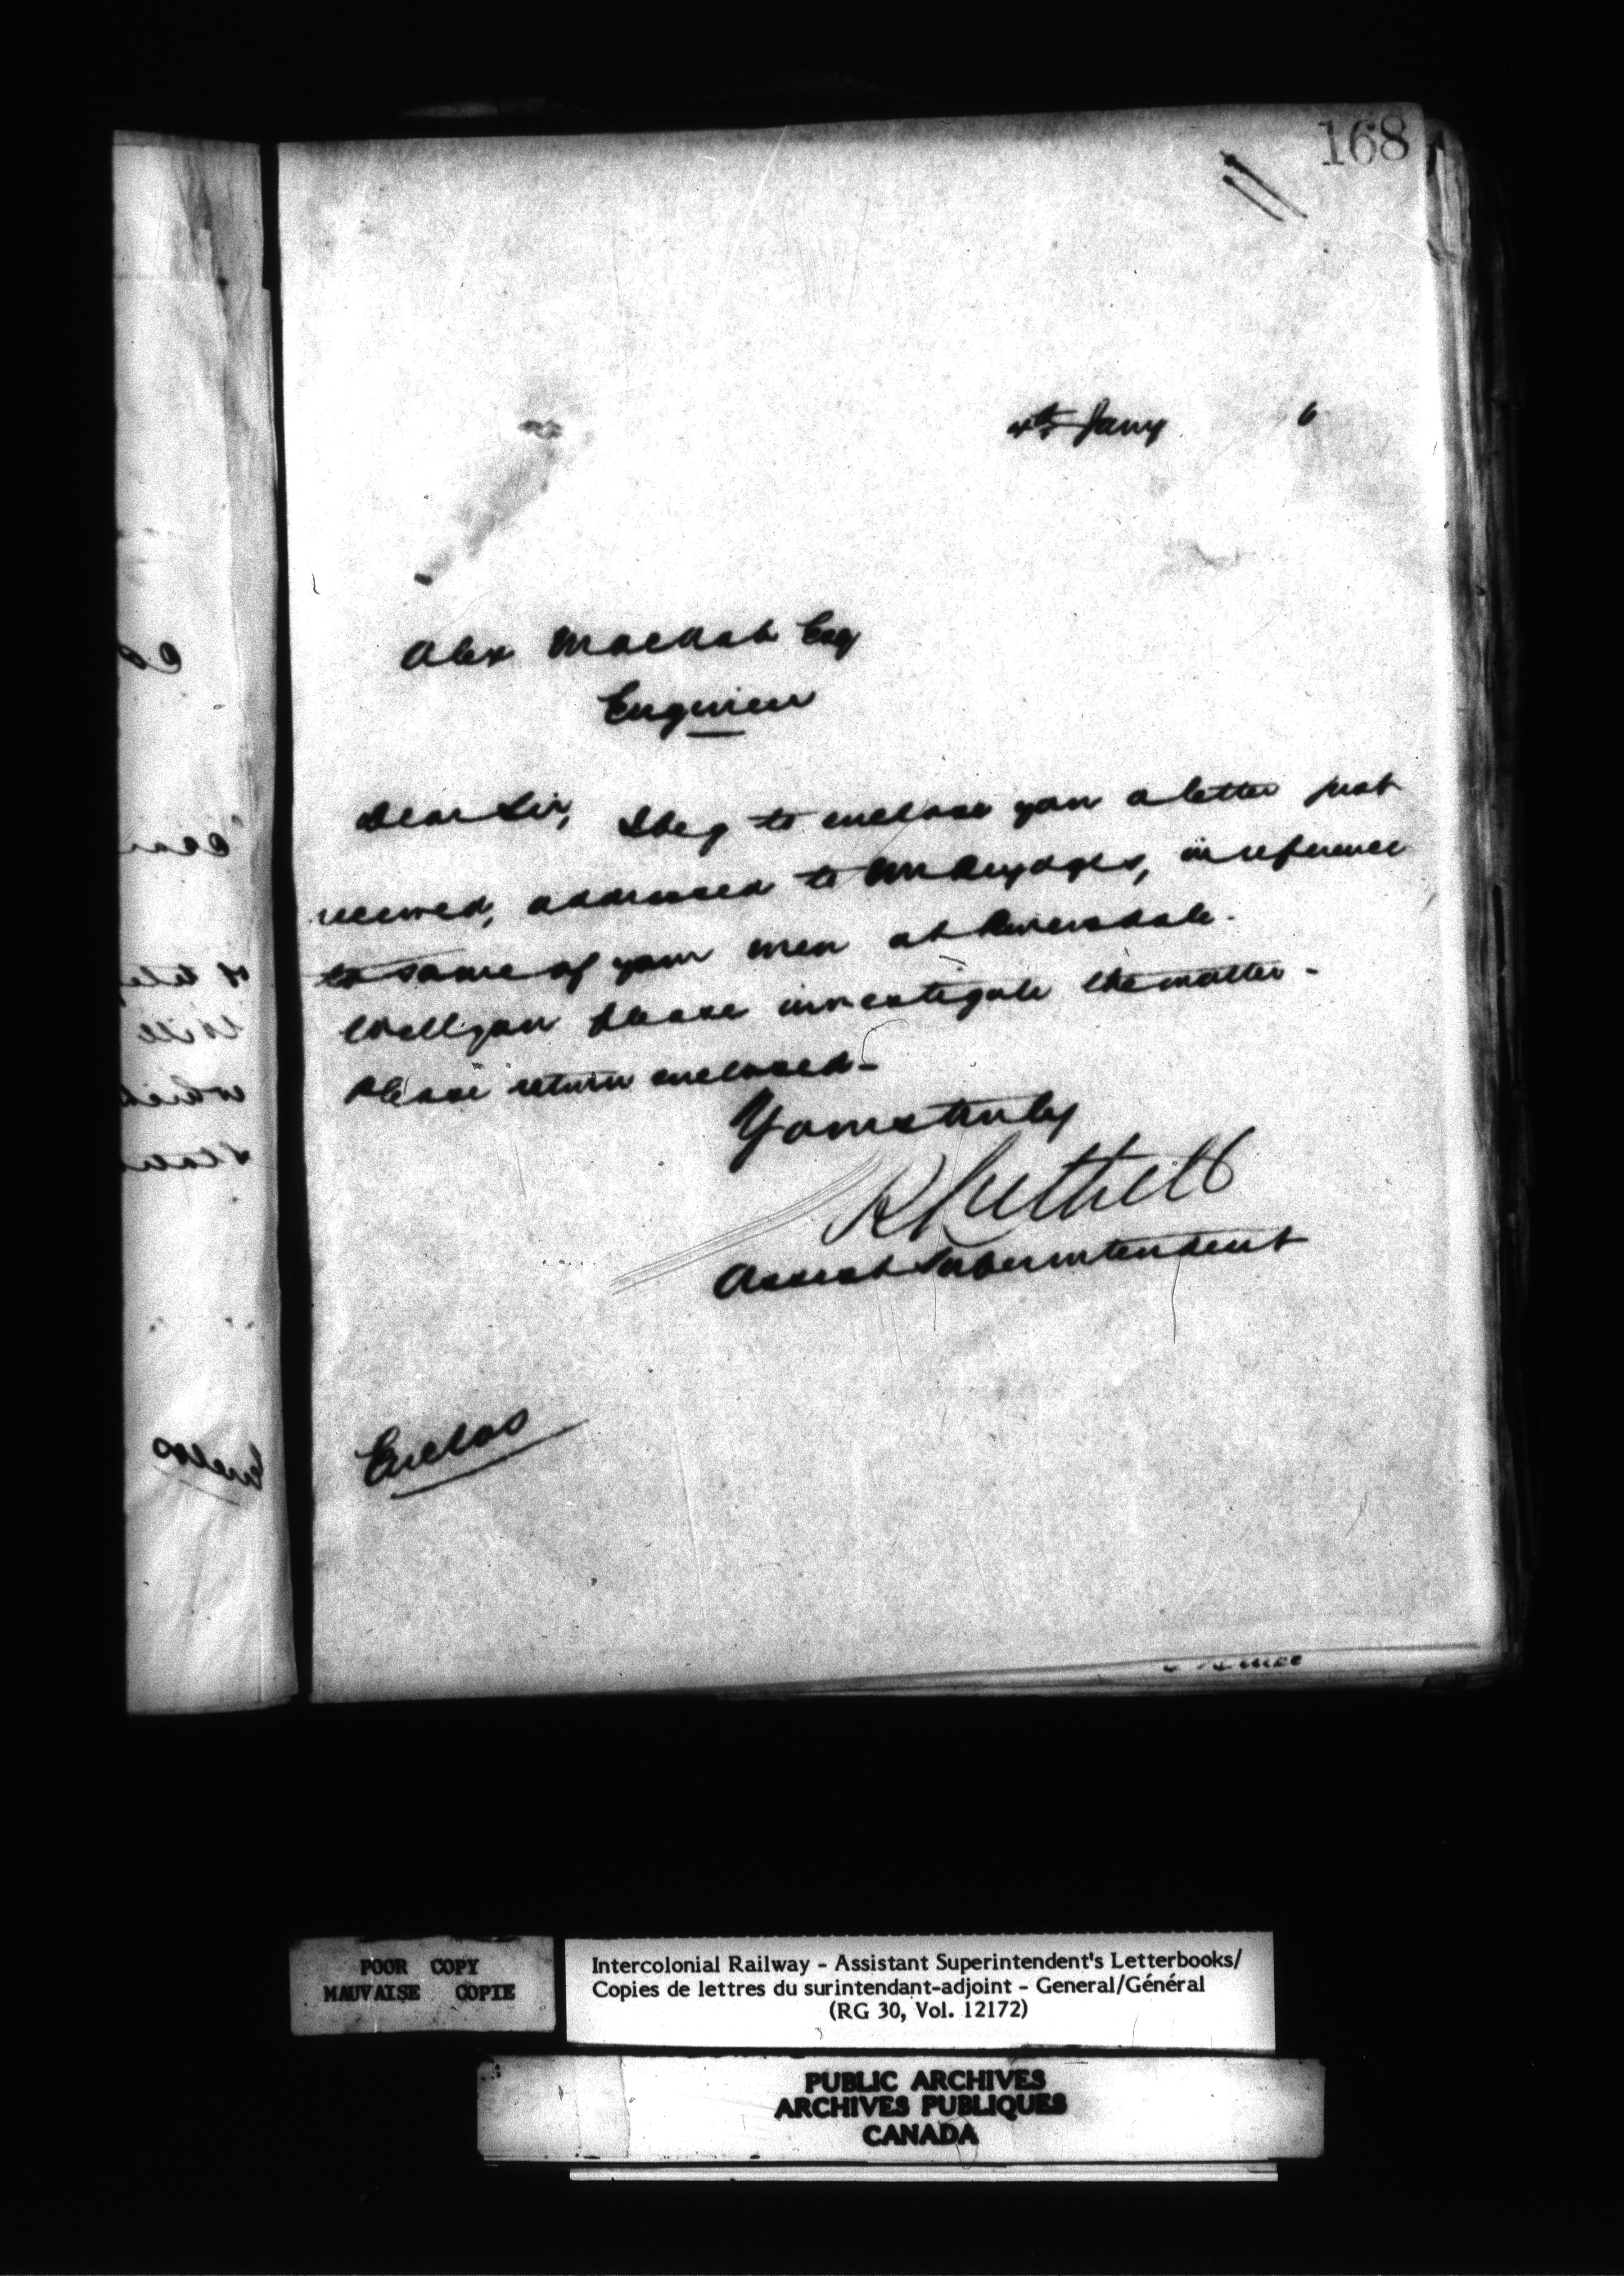 168
4th Jany 6
Alex MacNab Esq
Engineer
Dear Sir, I beg to enclose you a letter just
received, addressed to Mr Brydges, in reference
to some of your men at Riversdale.
Will you please investigate the matter -
Please return enclosed -
Yours truly
R Luttrell
Assist Superintendent
Enclos
POOR COPY
MAUVAISE COPIE
Intercolonial Railway - Assistant Superintendent's Letterbooks/
Copies de lettres du surintendant-adjoint - General/Général
(RG 30, Vol. 12172)
PUBLIC ARCHIVES
ARCHIVES PUBLIQUES
CANADA